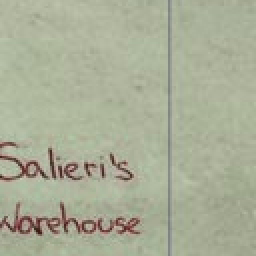 Salieri's
Warehouse